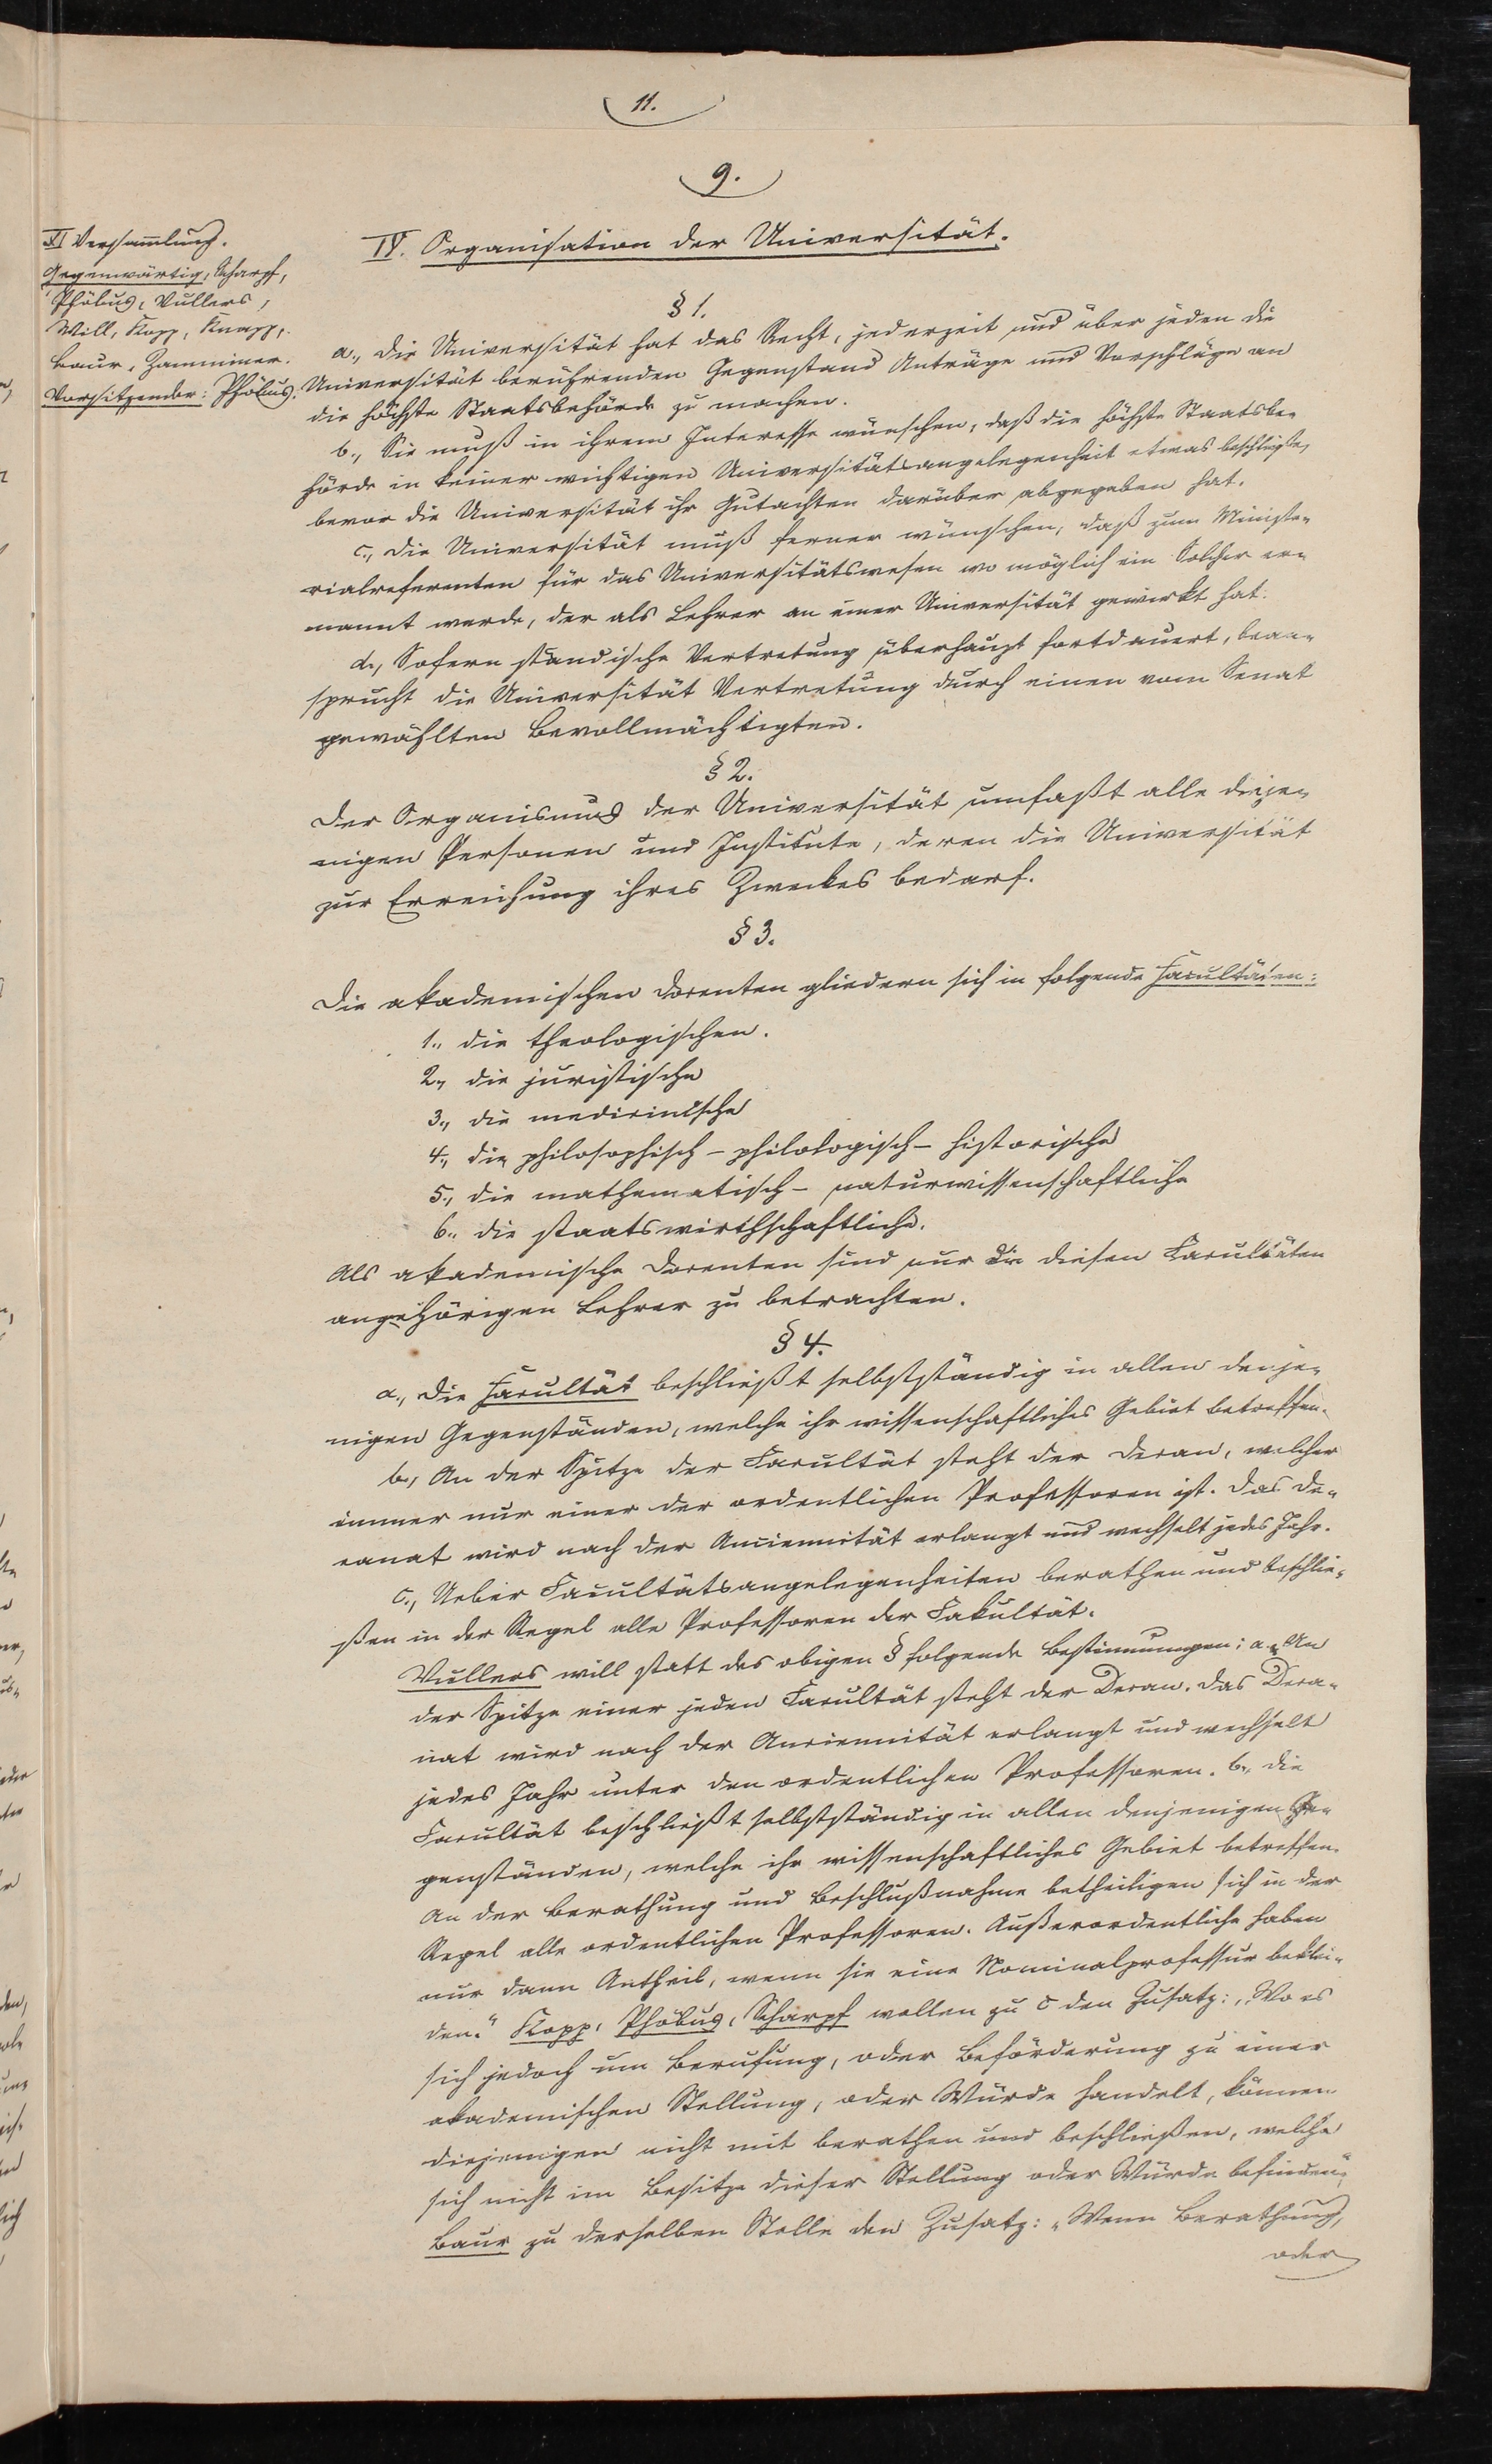 11.
9.
XI Versammlung.
Gegenwärtig, Scharpf,
Phöbus, Vullers,
Will, Kopp, Knapp,
Baur, Zamminer.
Vorsitzender: Phöbus.
IV. Organisation der Universität.
§ 1.
a., Die Universität hat das Recht, jederzeit und über jeden die
Universität berührenden Gegenstand Anträge und Vorschläge an
die höchste Staatsbehörde zu machen.
b., Sie muß in ihrem Interesse wünschen, daß die höchste Staatsbe-
hörde in keiner wichtigen Universitätsangelegenheit etwas beschließe,
bevor die Universität ihr Gutachten darüber abgegeben hat.
c., Die Universität muß ferner wünschen, daß zum Ministe-
rialreferenten für das Universitätswesen wo möglich ein Solcher er-
nannt werde, der als Lehrer an einer Universität gewirkt hat.
d., Sofern ständische Vertretung überhaupt fortdauert, bean-
sprucht die Universität Vertretung durch einen vom Senat
gewählten Bevollmächtigten.
§ 2.
Der Organismus der Universität umfaßt alle dieje-
nigen Personen und Institute, deren die Universität
zur Erreichung ihres Zweckes bedarf.
§ 3.
Die akademischen Docenten gliedern sich in folgende Facultäten:
1., die theologischen.
2., die juristische
3., die medicinische
4., die philosophisch-philologisch-historische
5., die mathematisch-naturwissenschaftliche
6., die staatswirthschaftliche.
Als akademische Docenten sind nur die diesen Facultäten
angehörigen Lehrer zu betrachten.
§ 4.
a., Die Facultät beschließt selbstständig in allen denje-
nigen Gegenständen, welche ihr wissenschaftliches Gebiet betreffen.
b., An der Spitze der Facultät steht der Decan, welcher
immer nur einer der ordentlichen Professoren ist. Das De-
canat wird nach der Anciennität erlangt und wechselt jedes Jahr.
c., Ueber Facultätsangelegenheiten berathen und beschlie-
ßen in der Regel alle Professoren der Fakultät.
Vullers will statt des obigen § folgende Bestimmungen: a., An
der Spitze einer jeden Facultät steht der Decan. Das Deca-
nat wird nach der Anciennität erlangt und wechselt
jedes Jahr unter den ordentlichen Professoren. b., die
Facultät beschließt selbstständig in allen denjenigen Ge-
genständen, welche ihr wissenschaftliches Gebiet betreffen.
An der Berathung und Beschlußnahme betheiligen sich in der
Regel alle ordentlichen Professoren. Außerordentliche haben
nur dann Antheil, wenn sie eine Nominalprofessur beklei-
den." Kopp, Phöbus, Scharpf wollen zu c den Zusatz: „Wo es
sich jedoch um Berufung, oder Beförderung zu einer
akademischen Stellung, oder Würde handelt, können
diejenigen nicht mit berathen und beschließen, welche
sich nicht im Besitze dieser Stellung oder Würde befinden",
Baur zu derselben Stelle den Zusatz: „Wenn Berathung,
oder